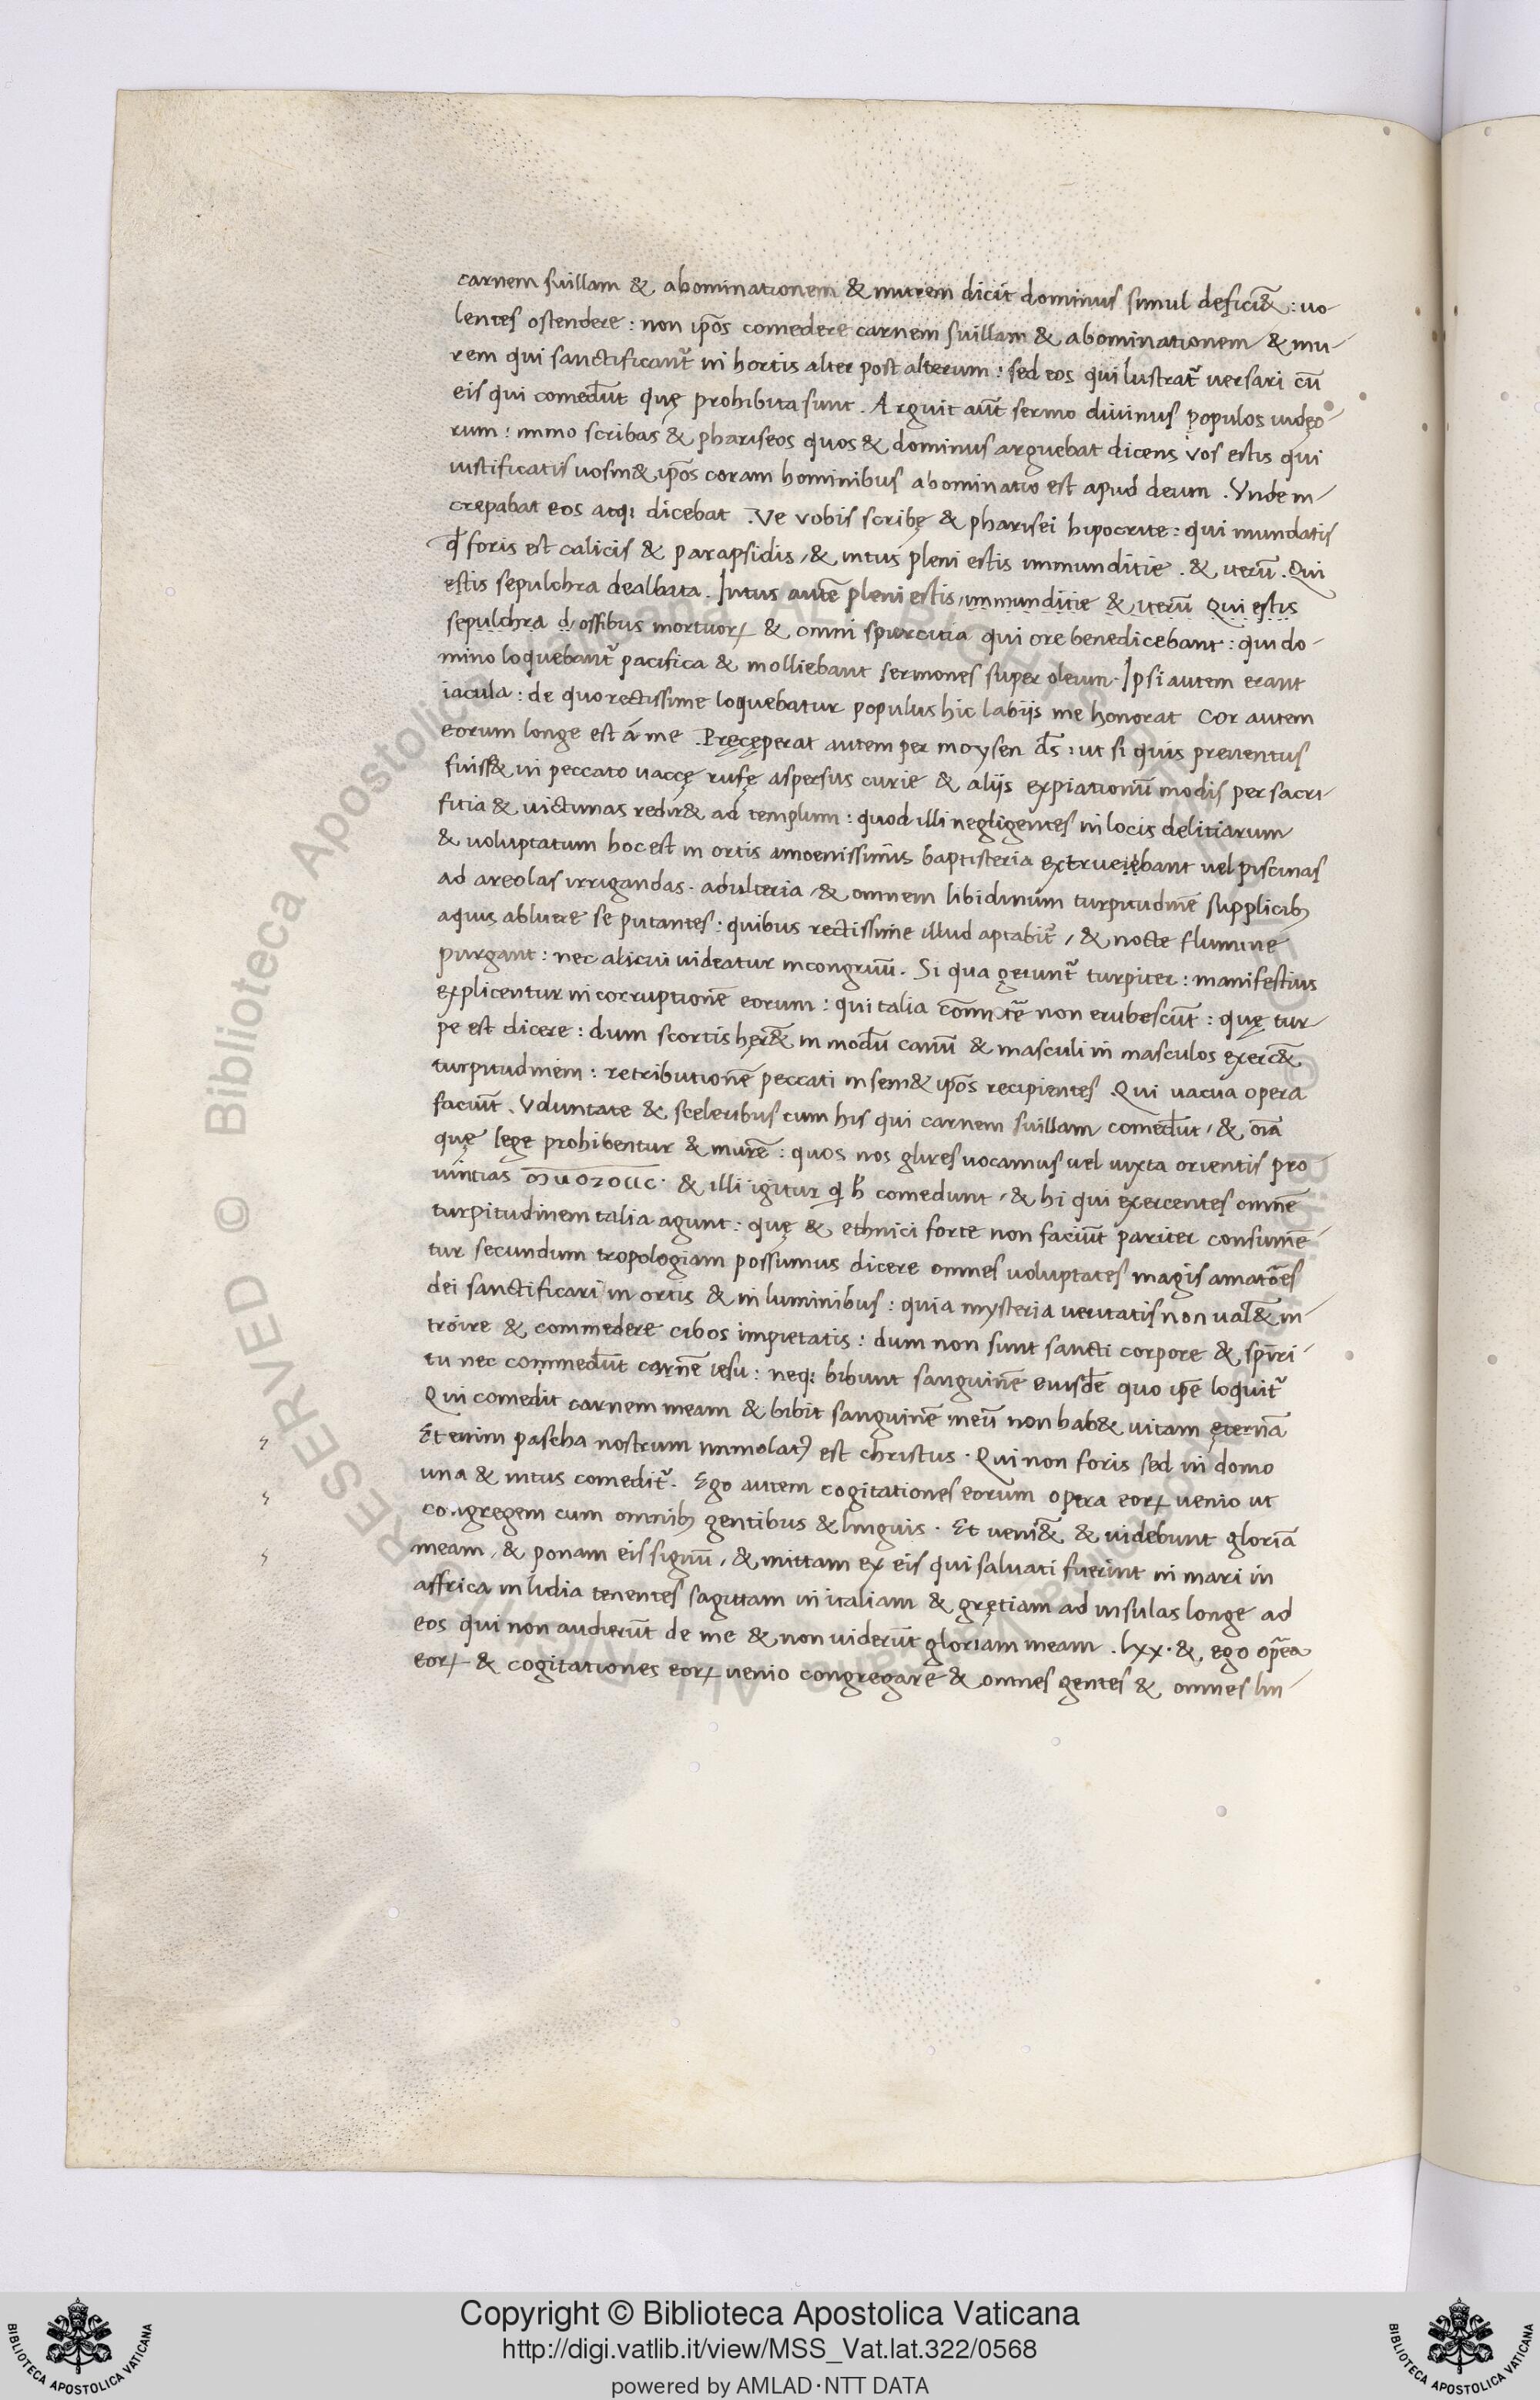 carnem suillam & abominationem & murem dicit dominus simul defici&̄ : uo-
lentes ostendere : non ip̄os comedere carnem suillam & abominationem & mu-
rem qui sanctificant᷑ in hortis alter post alterum : sed eos qui lustrat᷑ uersari cū
eis qui comedūt quę prohibita sunt . Arguit aūt sermo diuinus populos iudęo-
rum : immo scribas & phariseos quos & dominus arguebat dicens vos estis qui
iustificatis uosm& ip̄os coram hominibus abominatio est apud deum . Vnde in-
crepabat eos atq: dicebat . Ve vobis scribę & pharisei hipocrite : qui mundatis
qđ foris est calicis & parapsidis / & intus pleni estis immunditie . & iterū . Qui
estis sepulchra dealbata . Intus autē pleni estis immunditie & iterū Qui estis
sepulchra d / ossibus mortuoꝝ & omni spurcitia qui ore benedicebant : qui do-
mino loquebant᷑ pacifica & molliebant sermones super oleum . Ipsi autem erant
iacula : de quo rectissime loquebatur populus hic labijs me honorat Cor autem
eorum longe est á me . Pręcęperat autem per moysen ds̄ : ut si quis preuentus
fuiss& in peccato uaccę rufę aspersus curie & alijs expiationū modis per sacri-
fitia & uictimas redir& ad templum : quod illi negligentes in locis delitiarum
& uoluptatum hoc est in ortis amoenissimis baptisteria extrueiebant uel piscinas
ad areolas irrigandas . adulteria / & omnem libidinum turpitudinē supplicib;
aquis abluere se putantes : quibus rectissime illud aptabit᷑ / & nocte flumine
purgant : nec alicui uideatur incongruū . Si qua gerunt᷑ turpiter : manifestius
explicentur in corruptionē eorum : qui talia non erubescūt : quę tur-
pe est dicere : dum scortis her&̄ in modū canū & masculi in masculos exerc&̄
turpitudinem : retributionē peccati in sem& ip̄os recipientes . Qui uacua opera
faciūt . Voluntate & sceleribus cum his qui carnem suillam comedūt / & oīa
quę lege prohibentur & murē : quos nos glires uocamus uel iuxta orientis pro
uintias . & illi igitur q h̄ comedunt / & hi qui exercentes omnē
turpitudinem talia agunt : quę & ethnici forte non faciūt pariter consumē-
tur secundum tropologiam possumus dicere omnes uoluptates magis amatōes
dei sanctificari in ortis & in luminibus : quia mysteria ueritatis non ual&̄ in-
troire & commedere cibos impietatis : dum non sunt sancti corpore & spīri-
tu nec commedūt carnē iesu : neq: bibunt sanguinē eiusdē quo ip̄e loquit᷑
Qui comedit carnem meam & bibit sanguinē meū non hab& uitam ęternā
Et enim pascha nostrum immolatꝰ est christus . Qui non foris sed in domo
una & intus comedit᷑ . Ego autem cogitationes eorum opera eoꝝ uenio ut
congregem cum omnib; gentibus & linguis . Et ueni&̄ & uidebunt gloriā
meam / & ponam eis signū / & mittam ex eis qui saluati fuerint in mari in
affrica in lidia tenentes sagittam in italiam & grętiam ad insulas longe ad
eos qui non audierūt de me & non uiderūt gloriam meam . lxx . & ego op̄ea
eoꝝ & cogitationes eoꝝ uenio congregare & omnes gentes & omnes lin-
Copyright © Biblioteca Apostolica Vaticana
http://digi.vatlib.it/view/MSS_Vat.lat.322/0568
powered by AMLAD·NTT DATA
BIBLIOTECA APOSTOLICA VATICANA
BIBLIOTECA APOSTOLICA VATICANA